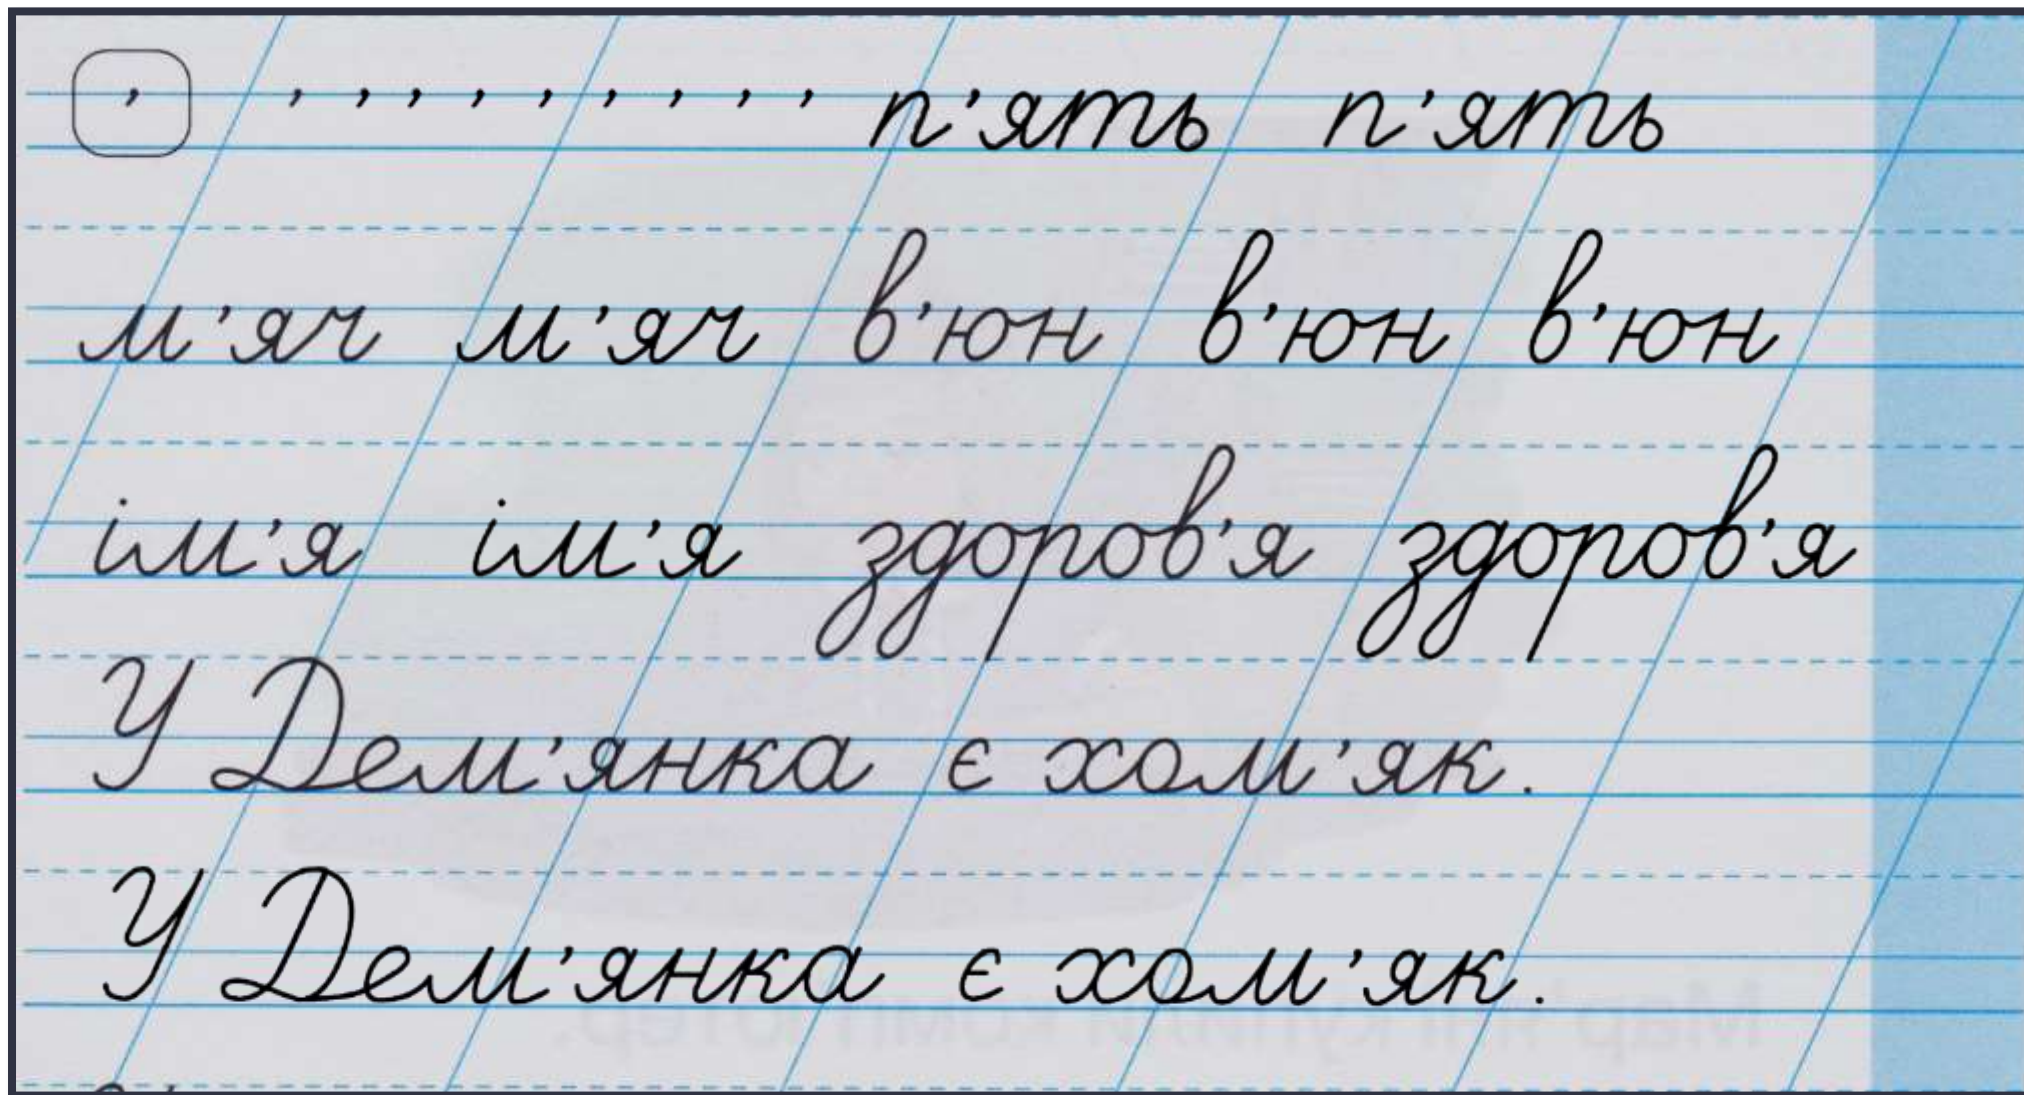 ’ ’ ’ ’ ’ ’ ’ ’ ’ ’ п’ять п’ять
м’яч м’яч в’юн в’юн в’юн
ім’я ім’я здоров’я здоров’я
У Дем’янка є хом’як.
У Дем’янка є хом’як.